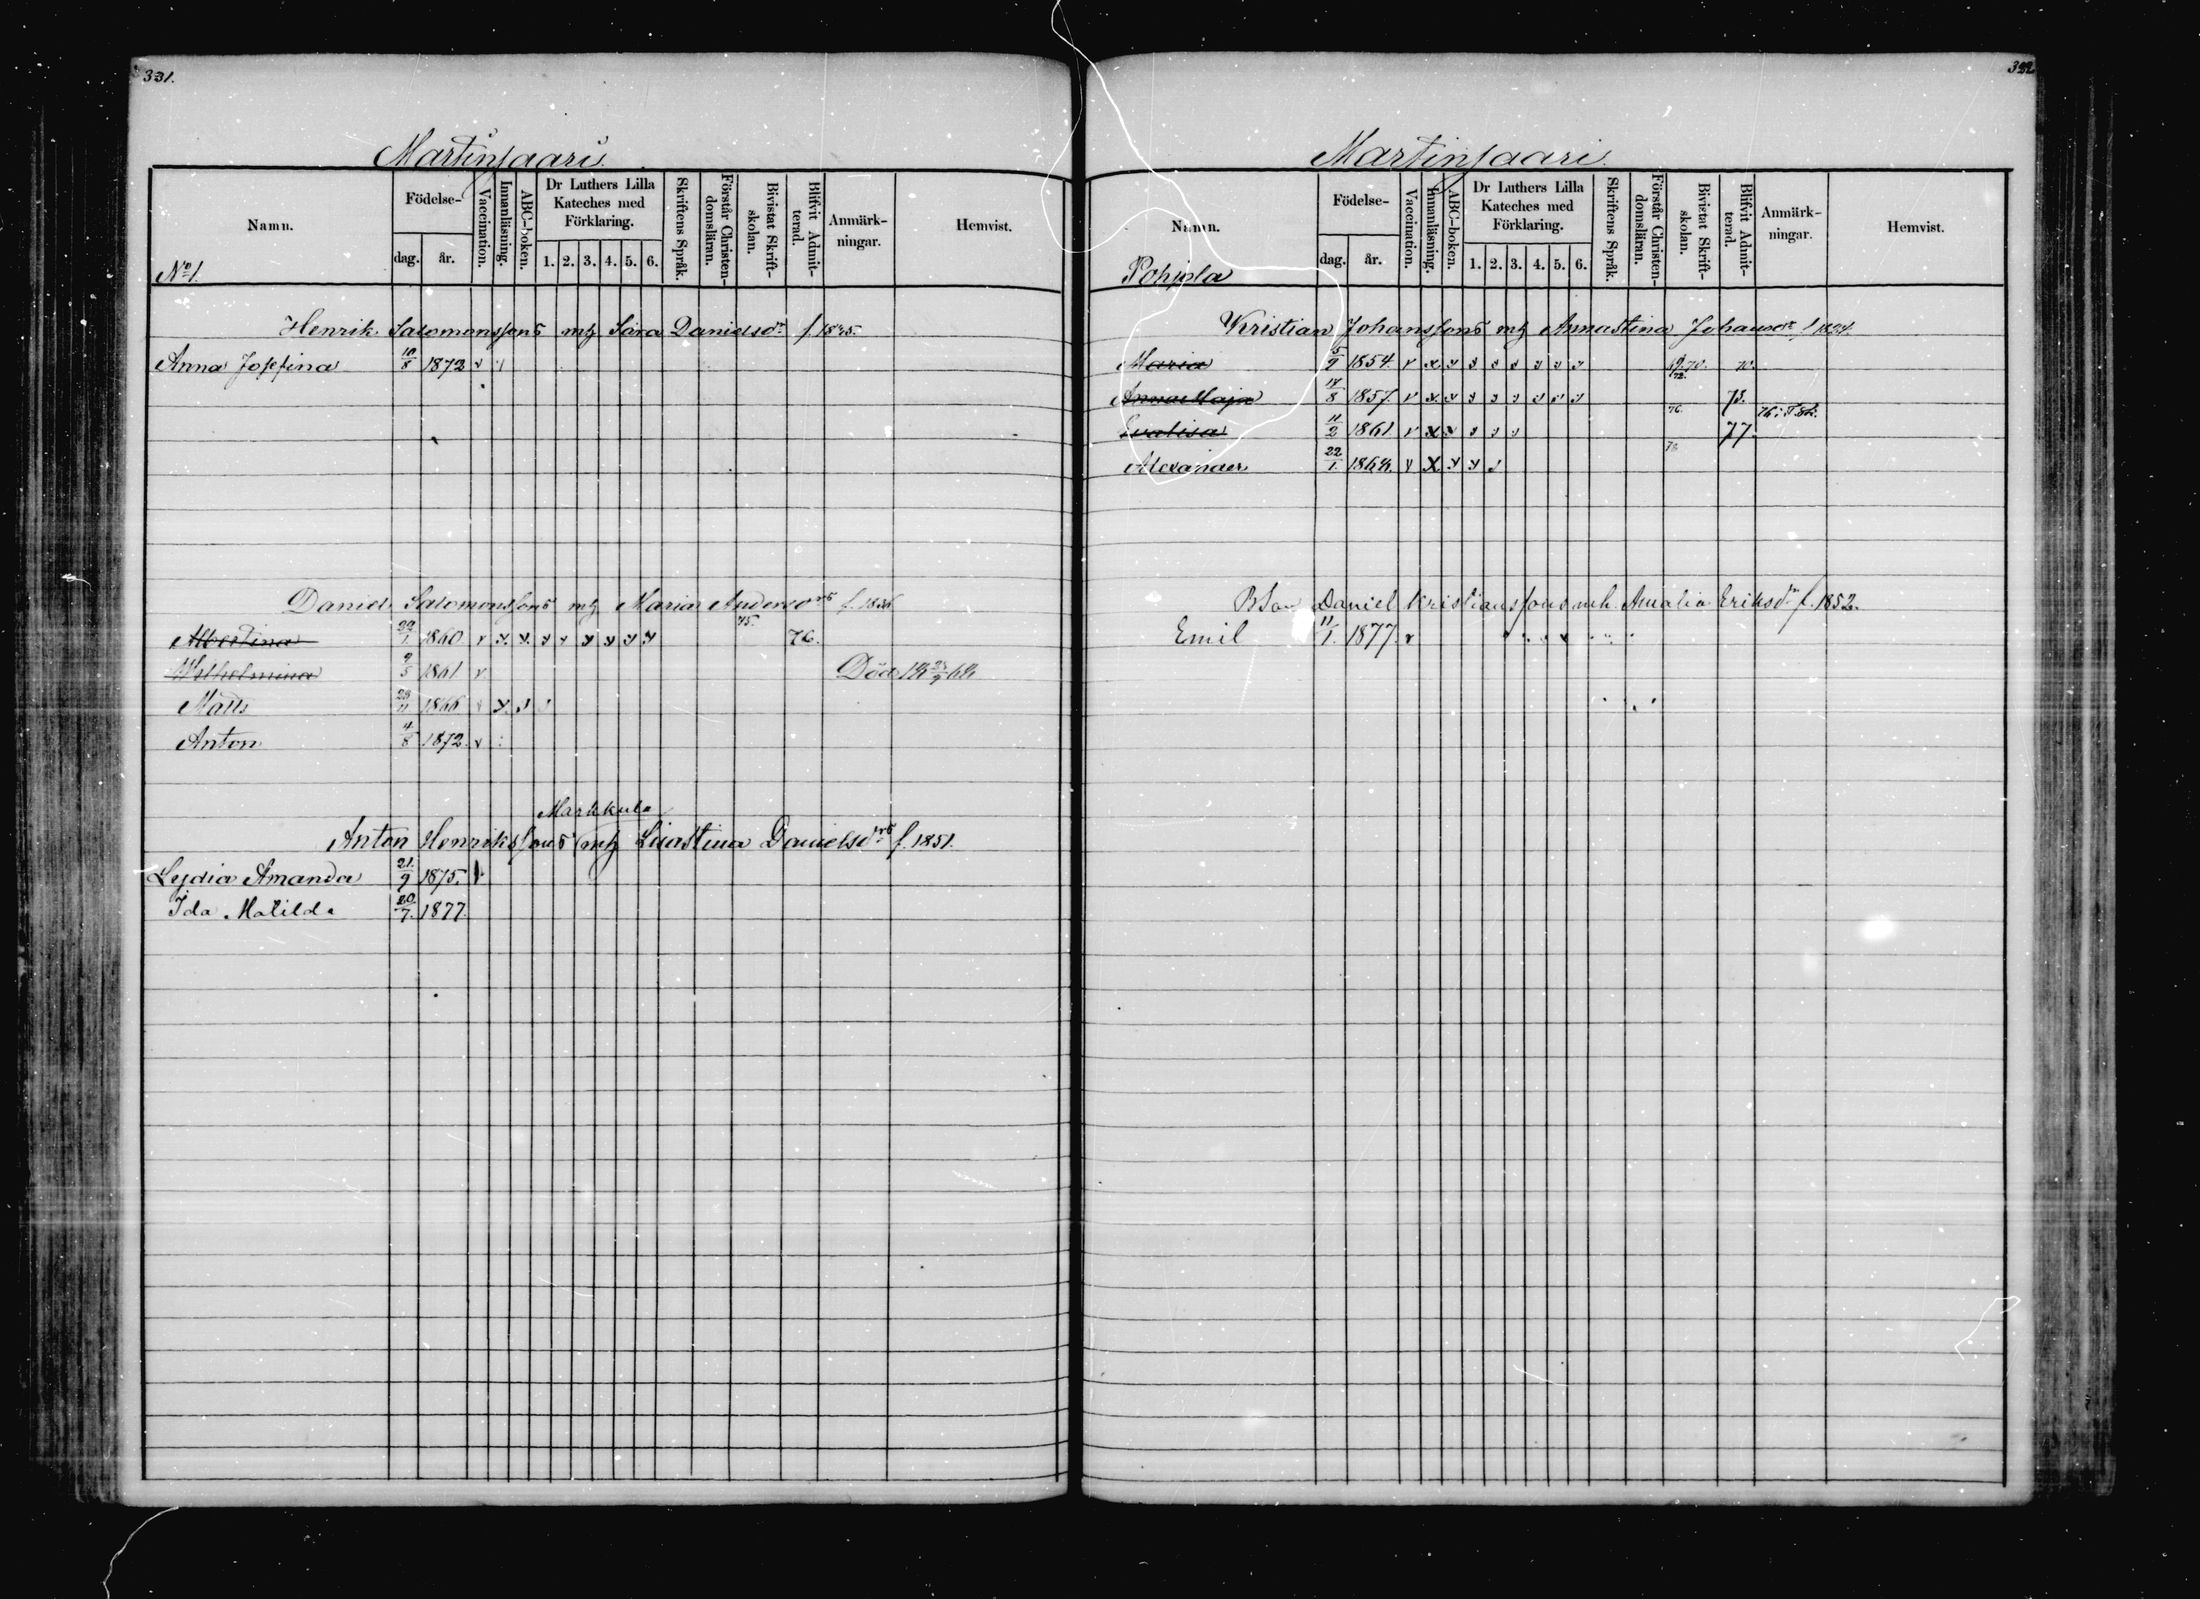 331.
Martinsaari.
Namn.
Födelse-
dag.
år.
Vaccination.
Innanläsning.
ABC-boken.
Dr Luthers Lilla Kateches med Förklaring.
1. 2. 3. 4. 5. 6.
Skriftens Språk.
Förstår Christen-domsläran.
Bivistat Skrift-skolan.
Blifvit Admit-terad.
Anmärk-ningar.
Hemvist.
No 1.
Henrik Salomonssons mh Sara Danielsdr f. 1845.
Anna Josefina 10/8 1872 v
Daniel Salomonssons mh Maria Andersdrs f. 1836
Albertina 22/1 1860 v x x v v v v v v 75. 76.
Wilhelmina 9/5 1861 v Död
Matts 23/11 1866 v x v
Anton 4/8 1872 v
Markkula
Anton Henrikssons mh Lisastina Danielsdrs f. 1851.
Lydia Amanda 21/9 1875. v
Ida Matilda 20/7. 1877.
332
Martinsaari.
Namn.
Födelse-
dag.
år.
Vaccination.
Innanläsning.
ABC-boken.
Dr Luthers Lilla Kateches med Förklaring.
1. 2. 3. 4. 5. 6.
Skriftens Språk.
Förstår Christen-domsläran.
Bivistat Skrift-skolan.
Blifvit Admit-terad.
Anmärk-ningar.
Hemvist.
Pohjola
Kristian Johanssons mh Annastina Johansdr f. 1824.
Maria 5/9 1854. v x v v v v v v v 70.
Anna Maja 17/8 1857. v x x v v v v v v 72. 73.
Evalisa 11/2 1861 v x x v v v 76. 77.
Alexander 22/1. 1864. v x v v v 78
BSon Daniel Kristianssons mh. Amalia Eriksdr f. 1852.
Emil 11/1. 1877. v